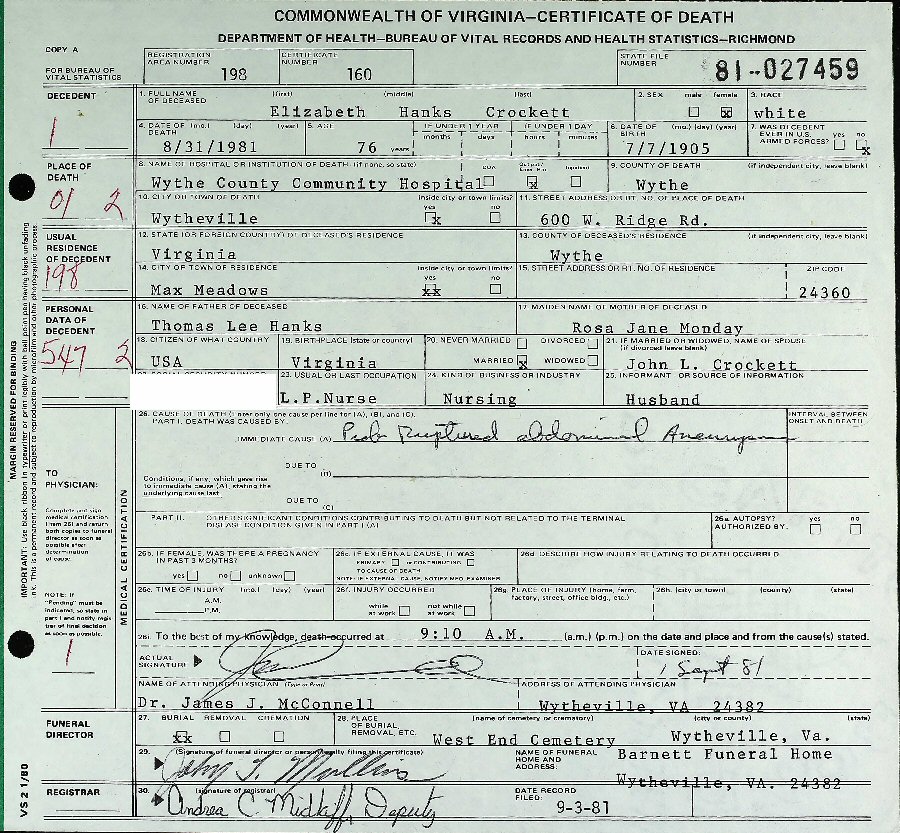 COMMONWEALTH OF VIRGINIA—CERTIFICATE OF DEATH
DEPARTMENT OF HEALTH—BUREAU OF VITAL RECORDS AND HEALTH STATISTICS—RICHMOND
COPY A
FOR BUREAU OF VITAL STATISTICS
REGISTRATION AREA NUMBER 198
CERTIFICATE NUMBER 160
STATE FILE NUMBER 81-027459
DECEDENT
1
1. FULL NAME OF DECEASED (first) (middle) (last)
Elizabeth Hanks Crockett
2. SEX male female x
3. RACE white
4. DATE OF DEATH (mo.) (day) (year) 8/31/1981
5. AGE 76 years
IF UNDER 1 YEAR months days
IF UNDER 1 DAY hours minutes
6. DATE OF BIRTH (mo.) (day) (year) 7/7/1905
7. WAS DECEDENT EVER IN U.S. ARMED FORCES? yes no x
PLACE OF DEATH
01 2
8. NAME OF HOSPITAL OR INSTITUTION OF DEATH (if none, so state)
Wythe County Community Hospital
DOA Inpatient
9. COUNTY OF DEATH (if independent city, leave blank)
Wythe
10. CITY OR TOWN OF DEATH inside city or town limits? yes x no
Wytheville
11. STREET ADDRESS OR RT. NO. OF PLACE OF DEATH
600 W. Ridge Rd.
USUAL RESIDENCE OF DECEDENT
198
12. STATE (OR FOREIGN COUNTRY) OF DECEASED'S RESIDENCE
Virginia
13. COUNTY OF DECEASED'S RESIDENCE (if independent city, leave blank)
Wythe
14. CITY OF TOWN OF RESIDENCE inside city or town limits? yes xx no
Max Meadows
15. STREET ADDRESS OR RT. NO. OF RESIDENCE
ZIP CODE
24360
PERSONAL DATA OF DECEDENT
547 2
16. NAME OF FATHER OF DECEASED
Thomas Lee Hanks
17. MAIDEN NAME OF MOTHER OF DECEASED
Rosa Jane Monday
18. CITIZEN OF WHAT COUNTRY
USA
19. BIRTHPLACE (state or country)
Virginia
20. NEVER MARRIED DIVORCED
MARRIED x WIDOWED
21. IF MARRIED OR WIDOWED, NAME OF SPOUSE (if divorced leave blank)
John L. Crockett
23. USUAL OR LAST OCCUPATION
L.P.Nurse
24. KIND OF BUSINESS OR INDUSTRY
Nursing
25. INFORMANT OR SOURCE OF INFORMATION
Husband
MARGIN RESERVED FOR BINDING
IMPORTANT: Use black ribbon in typewriter or print legibly with ball point pen having black unfading ink. This is a permanent record and subject to reproduction by microfilm and other photographic process.
VS 2 1/80
TO PHYSICIAN:
Complete and sign medical certification (item 26) and return both copies to funeral director as soon as possible after determination of cause.
NOTE: If "Pending" must be indicated, so state in part I and notify registrar of final decision as soon as possible.
1
MEDICAL CERTIFICATION
26. CAUSE OF DEATH (Enter only one cause per line for (A), (B), and (C).
PART I. DEATH WAS CAUSED BY:
IMMEDIATE CAUSE (A) Prob Ruptured abdominal Aneurysm
INTERVAL BETWEEN ONSET AND DEATH
DUE TO (B)
Conditions, if any, which gave rise to immediate cause (A), stating the underlying cause last
DUE TO (C)
PART II. OTHER SIGNIFICANT CONDITIONS CONTRIBUTING TO DEATH BUT NOT RELATED TO THE TERMINAL DISEASE CONDITION GIVEN IN PART I (A)
26a. AUTOPSY? AUTHORIZED BY: yes no
26b. IF FEMALE, WAS THERE A PREGNANCY IN PAST 3 MONTHS? yes no unknown
26c. IF EXTERNAL CAUSE, IT WAS PRIMARY or CONTRIBUTING TO CAUSE OF DEATH
NOTE: IF EXTERNAL CAUSE, NOTIFY MED. EXAMINER
26d. DESCRIBE HOW INJURY RELATING TO DEATH OCCURRED
26e. TIME OF INJURY (mo.) (day) (year) A.M. P.M.
26f. INJURY OCCURRED while at work not while at work
26g. PLACE OF INJURY (home, farm, factory, street, office bldg., etc.)
26h. (city or town) (county) (state)
26i. To the best of my knowledge, death occurred at 9:10 A.M. (a.m.) (p.m.) on the date and place and from the cause(s) stated.
ACTUAL SIGNATURE
DATE SIGNED:
1 Sept 81
NAME OF ATTENDING PHYSICIAN (Type or Print)
Dr. James J. McConnell
ADDRESS OF ATTENDING PHYSICIAN
Wytheville, VA 24382
FUNERAL DIRECTOR
27. BURIAL REMOVAL CREMATION
xx
28. PLACE OF BURIAL REMOVAL, ETC. (name of cemetery or crematory) (city or county) (state)
West End Cemetery Wytheville, Va.
29. (Signature of funeral director or person legally filing this certificate)
John T. Mullins
NAME OF FUNERAL HOME AND ADDRESS:
Barnett Funeral Home
Wytheville, VA. 24382
REGISTRAR
30. (signature of registrar)
Andrea C Midkiff, Deputy
DATE RECORD FILED:
9-3-81